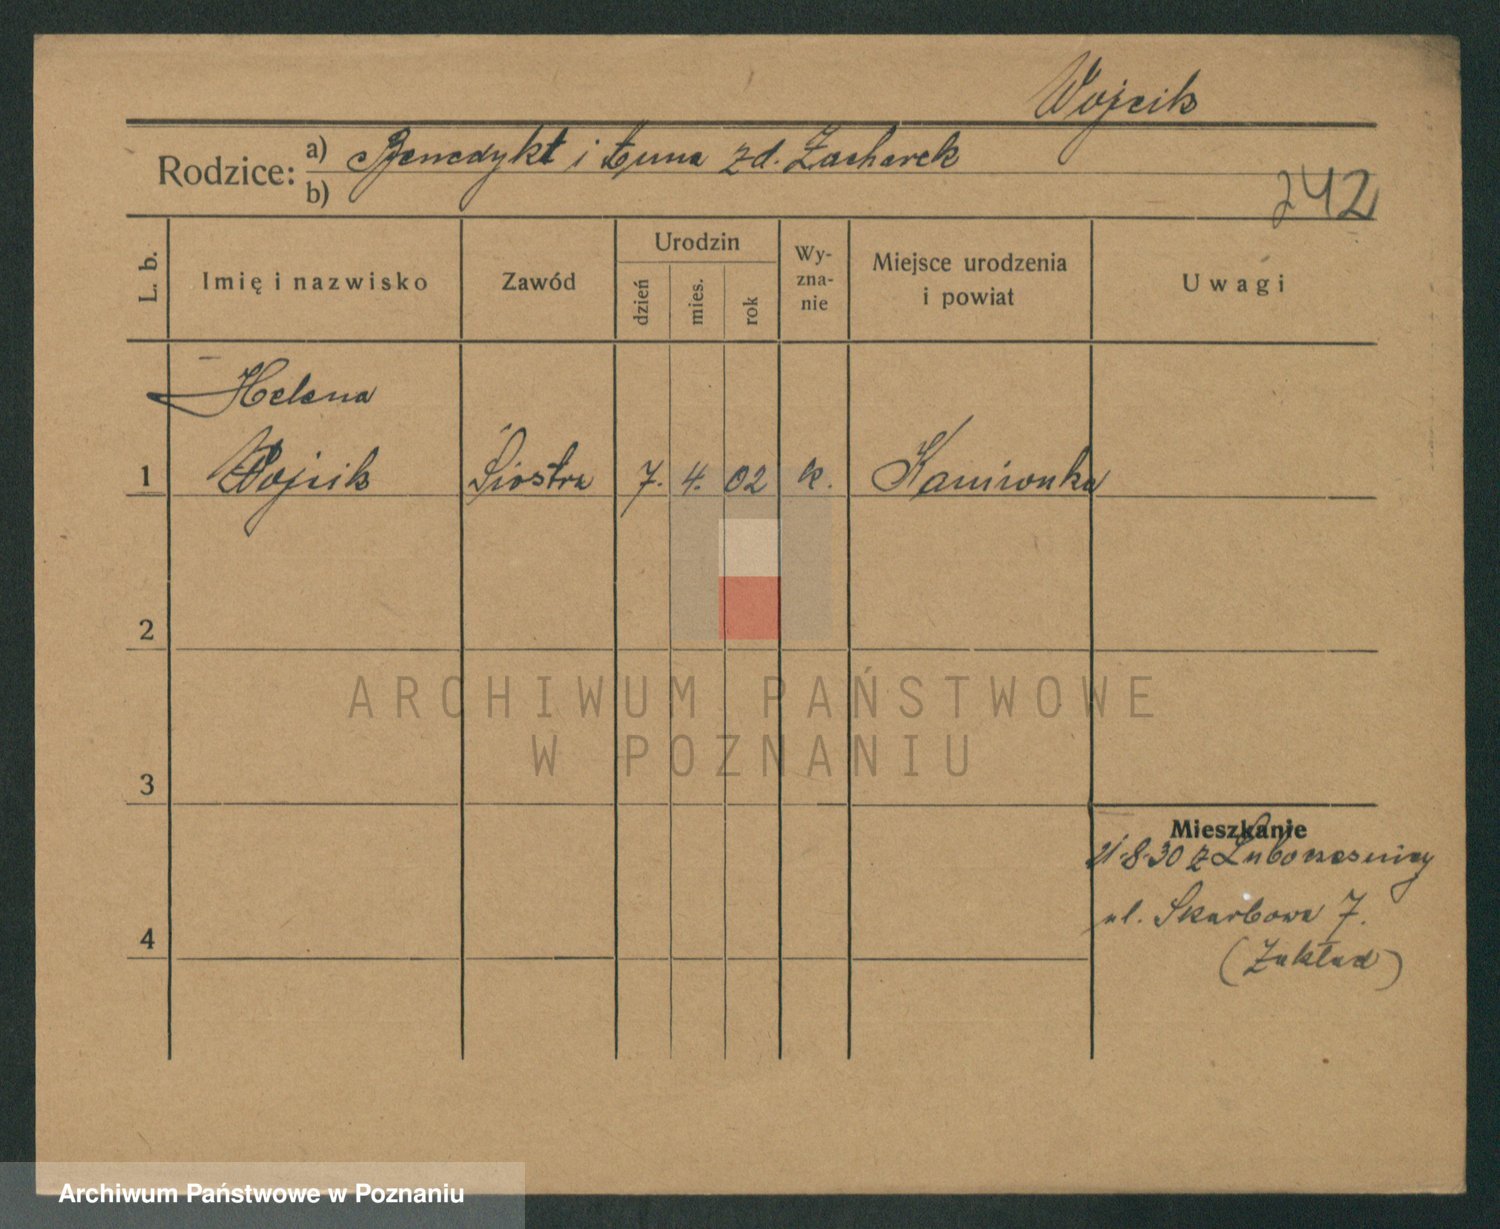 Wojcik
Rodzice: a) Benedykt i Anna zd. Zacharek
b)
242
L. b. Imię i nazwisko Zawód Urodzin dzień mies. rok Wy-zna-nie Miejsce urodzenia i powiat Uwagi
Helena
1 Wojcik Siostra 7. 4. 02 k. Kamionka
2
ARCHIWUM PAŃSTWOWE
W POZNANIU
3
Mieszkanie
21-8-30 z
ul. Skarbowa 7.
4
(Zakład)
Archiwum Państwowe w Poznaniu